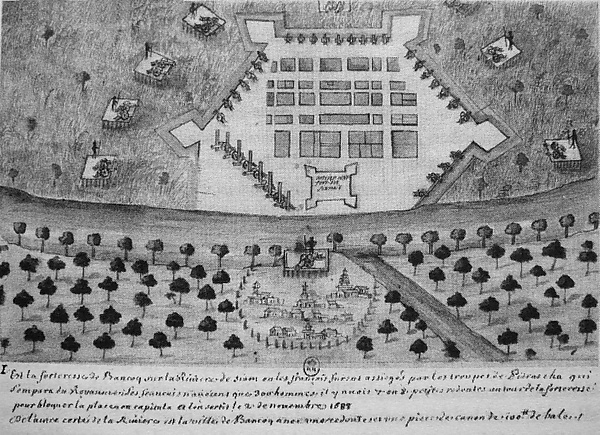 I Est la forteresse de Bancoq sur la Riviere de siam ou les francois furent assiegés par les troupes de Pitracha qui
s'empara du Royaume les francois n'avoient que 300 hommes il y avoit 7 ou 8 petites redoutes autour de la forteresse
pour bloquer la place on capitula et l'on sortit le 2 de novembre 1688
De l'autre costé de la Riviere est la ville de Bancoq avec une redoute et une piece de canon de 100# de bale